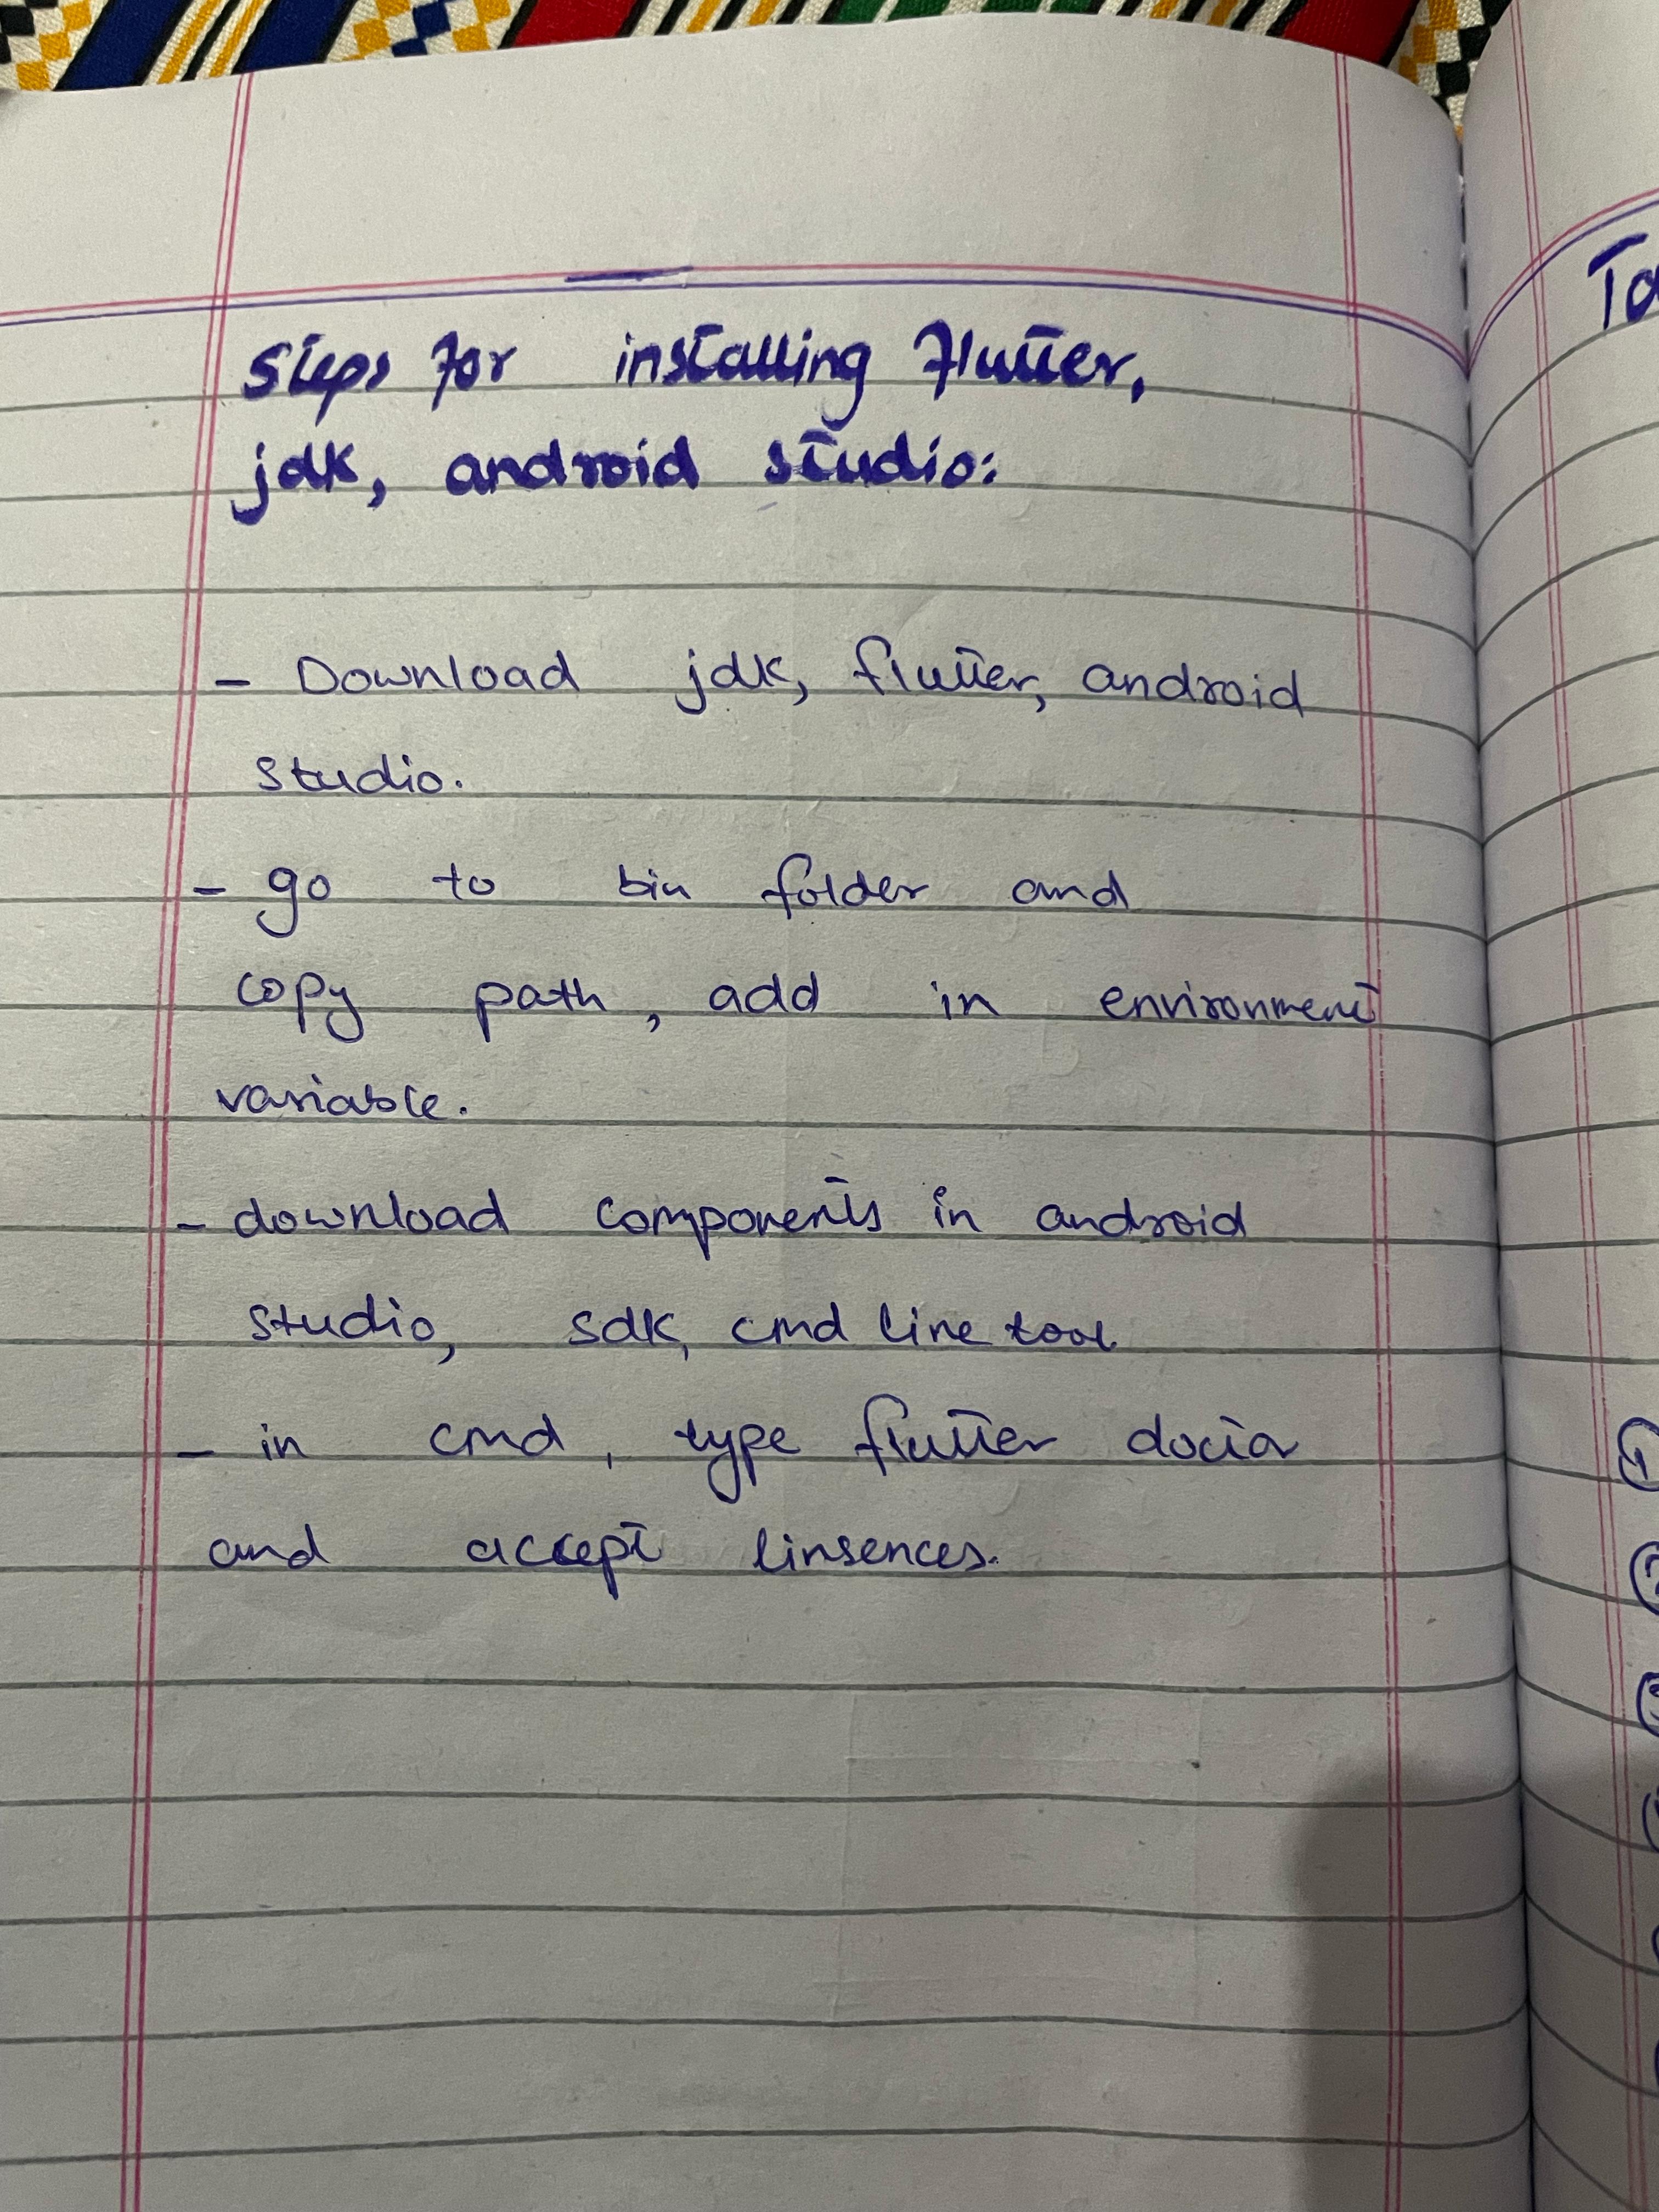 Steps for installing Flutter,
jdk, android studio:
- Download jdk, flutter, android
studio.
- go to bin folder and
copy path, add in environment
variable.
- download components in android
studio, sdk, cmd line tool.
- in cmd, type flutter doctor
and accept linsences.
To
1
2
3